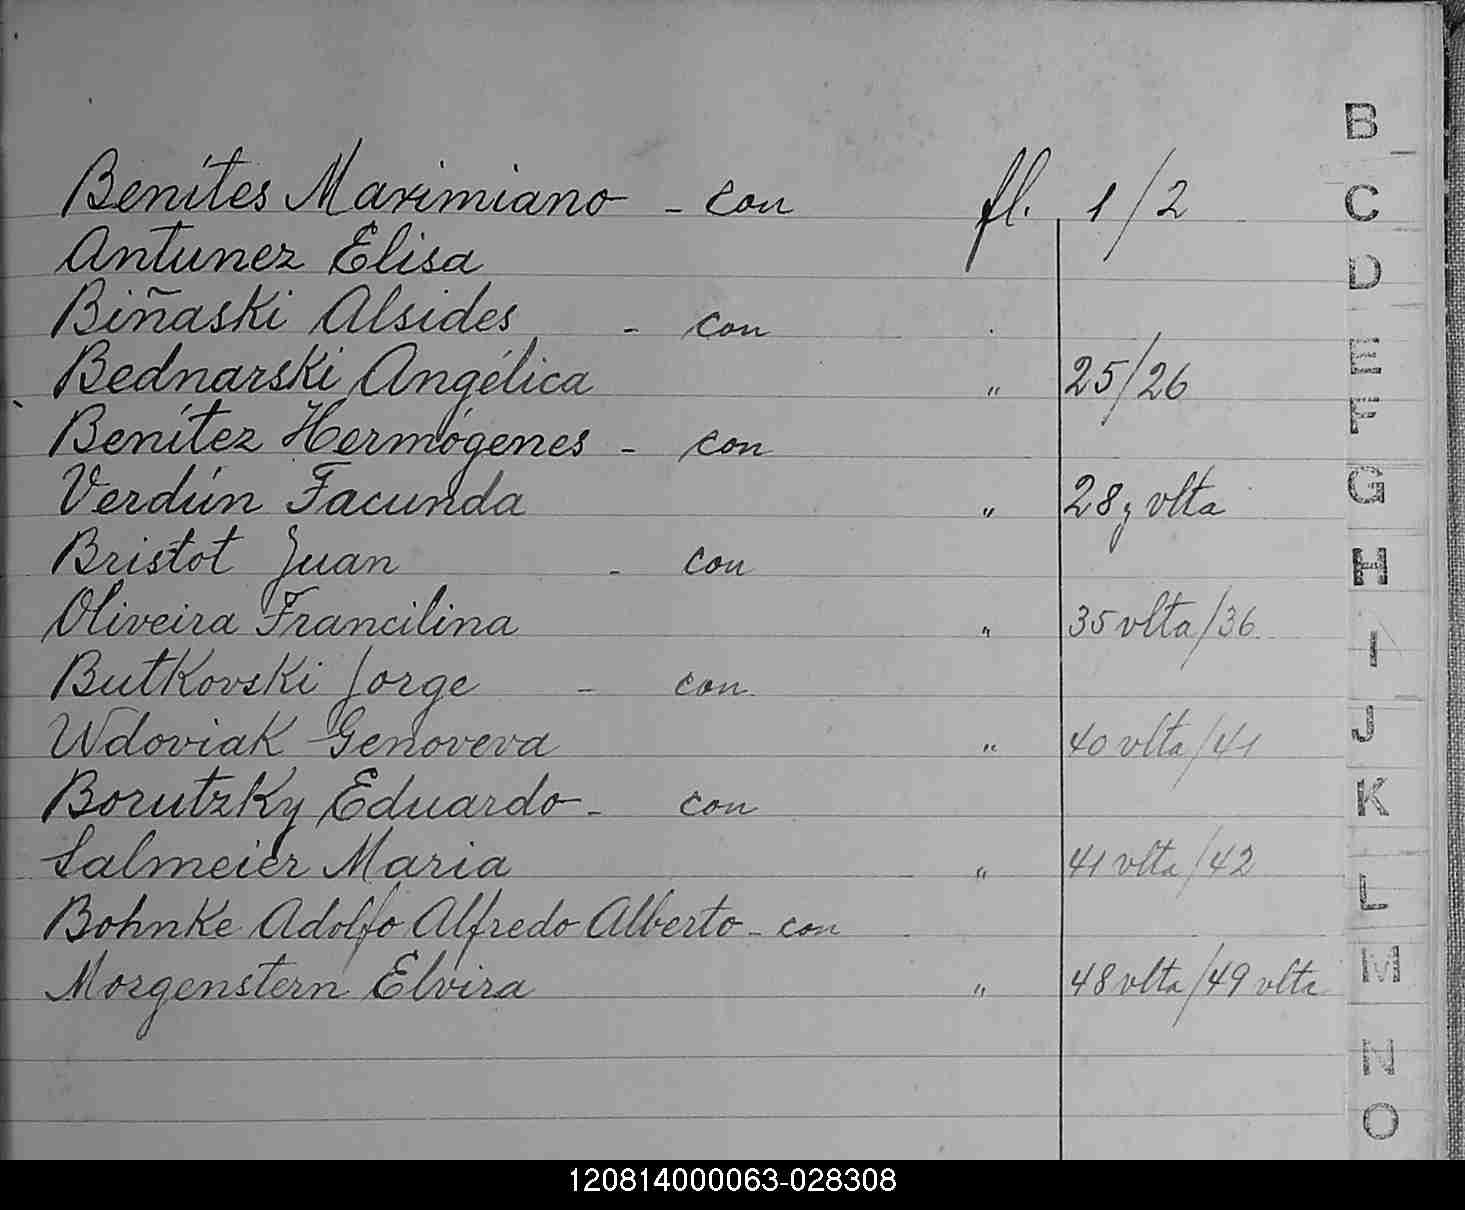 Benítes Maximiano - con fl. 1/2
Antunez Elisa
Biñaski Alsides - con
Bednarski Angélica " 25/26
Benítez Hermógenes - con
Verdún Facunda " 28 y vlta
Bristot Juan - con
Oliveira Francilina " 35 vlta/36
Butkovski Jorge - con
Wdoviak Genoveva " 40 vlta/41
Borutzky Eduardo - con
Salmeier Maria " 41 vlta/42
Bohnke Adolfo Alfredo Alberto - con
Morgenstern Elvira " 48 vlta/49 vlta
B
C
D
E
F
G
H
I
J
K
L
M
N
O
120814000063-028308